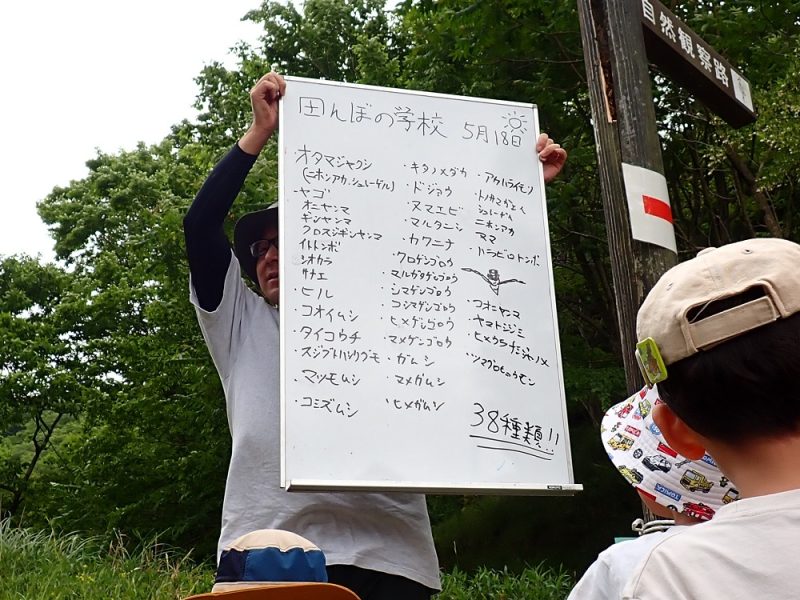 田んぼの学校 5月18日
・オタマジャクシ
(ニホンアカ、シュレーゲル)
・ヤゴ
オニヤンマ
ギンヤンマ
クロスジギンヤンマ
イトトンボ
シオカラ
サナエ
・ヒル
・コオイムシ
・タイコウチ
・スジブトハシリグモ
・マツモムシ
・コミズムシ
・キタノメダカ
・ドジョウ
・ヌマエビ
・マルタニシ
・カワニナ
・クロゲンゴロウ
・マルガタゲンゴロウ
・シマゲンゴロウ
・コシマゲンゴロウ
・ヒメゲンゴロウ
・マメゲンゴロウ
・ガムシ
・マメガムシ
・ヒメガムシ
・アカハライモリ
・トノサマガエル
シュレーゲル
ニホンアカ
アマ
・ハラビロトンボ
・コオニヤンマ
・ヤマトシジミ
・ヒメウラナミジャノメ
・ツマグロヒョウモン
38種類!!
自然観察路